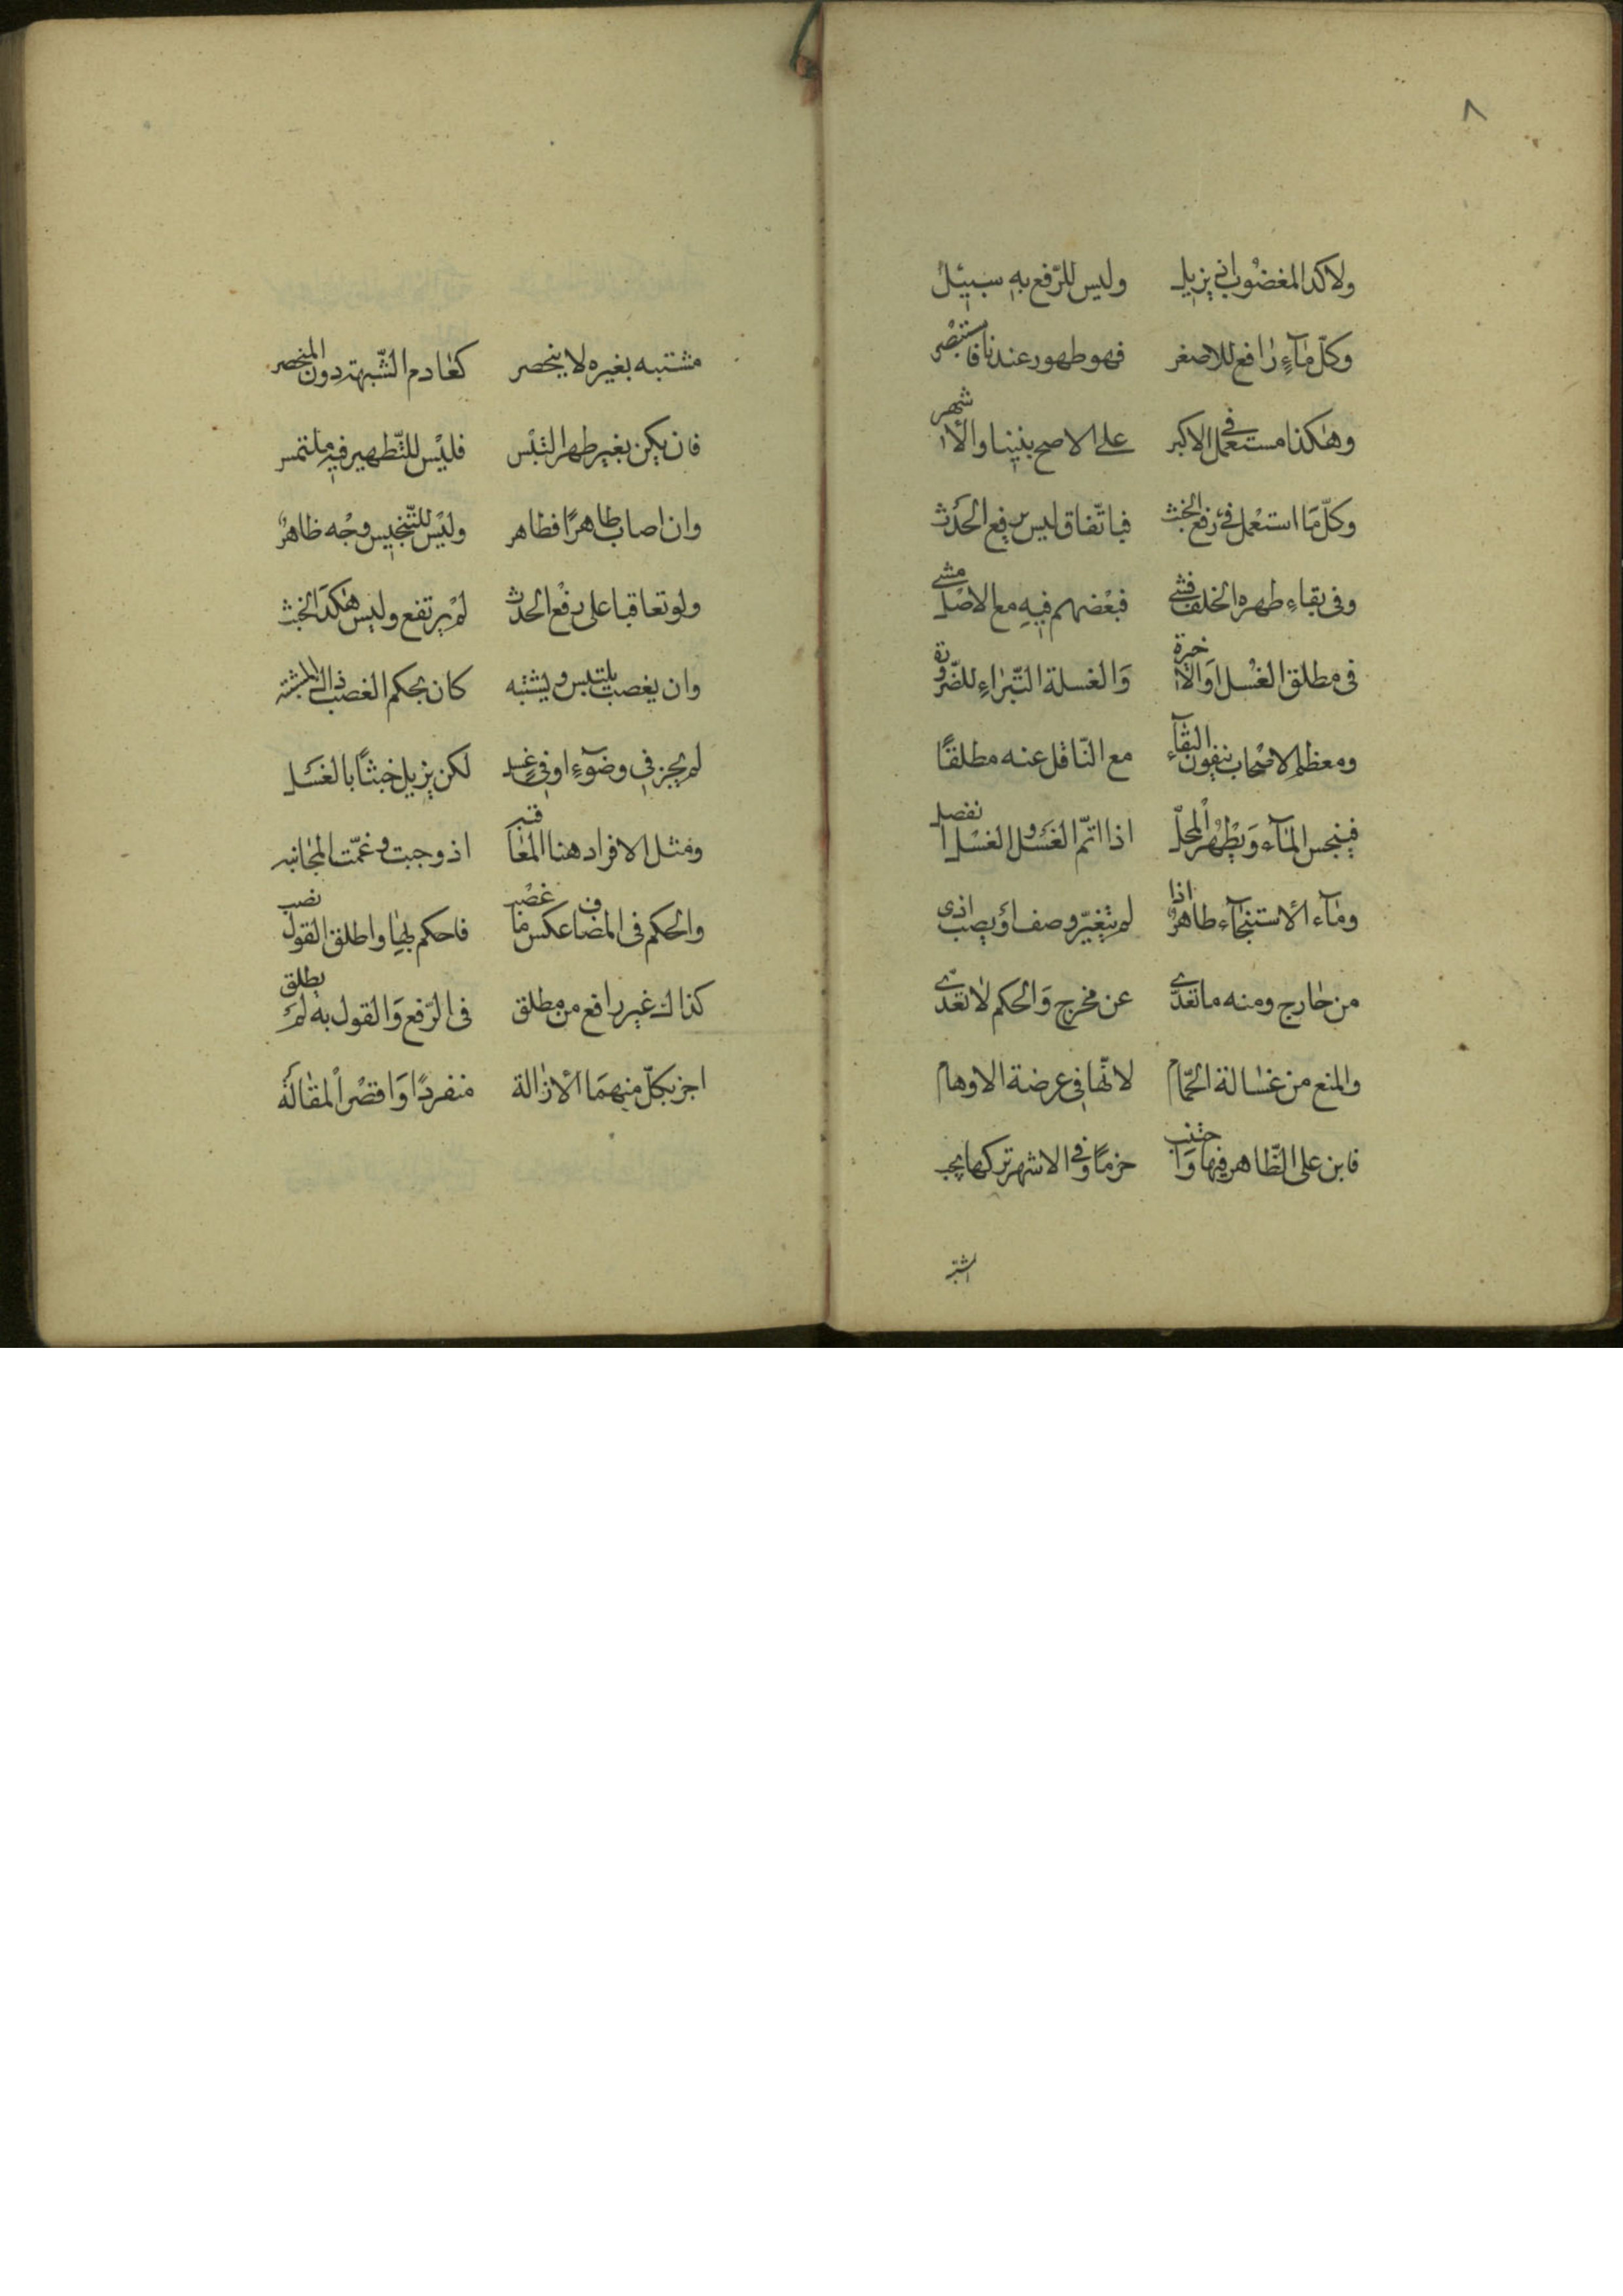 ٨
ولا كذا المغضوب اني يزيل وليس للرّفع به سبيل
وكلّ مآءٍ رافع للاصغر فهو طهور عندنا فاستبصر
وهكذا مستعمل في الاكبر على الاصح بيننا والاشهر
وكلّ ما استعمل في رفع الخبث فباتّفاق ليس يرفع الحدث
وفى بقاءِ طهره الخلف فشى فبعضهم فيه مع الاصل مشى
فى مطلق الغسل او الاخرة والغسلة التّبراءِ للضّرورة
ومعظم الاصحاب ينفون البقآء مع النّاقل عنه مطلقًا
فينجس المآء ويطهر المحلّ اذا اتمّ الغسل والغسل انفصل
ومآء الاستنجآء طاهرٌ اذا لم يتغيّر وصف او يصب اذى
من خارج ومنه ما تعدّى عن مخرج والحكم لا تعدّى
والمنع من غسالة الحمّام لانّها فى عرضة الاوهام
فابن على الظّاهر فيها واجتنب حزمًا وفى الاشهر تركها يجب
مشتبه بغيره لا ينحصر كعادم الشّبهة دون المنحصر
فان يكن بغير طهر التبس فليس للتّطهير فيه ملتمس
وان اصاب طاهرًا فطاهر وليس للتّنجيس وجه ظاهرٌ
ولو تعاقبا على رفع الحدث لم يرتفع وليس هكذا الخبث
وان يغصب يلتبس ويشتبه كان بحكم الغصب ذاك المشتبه
لم يجز فى وضوٓءٍ او فى غسل لكن يزيل خبثًا بالغسل
ومثل الافراد هنا المعاقبه اذ وجبت وعمّت المجانبه
والحكم فى المضاف عكس ما غصب فاحكم بها واطلق القول نصب
كذاك غير رافع من مطلق فى الرّفع والقول به لم يطلق
اجز بكلّ منهما الازالة منفردًا واقصر المقالة